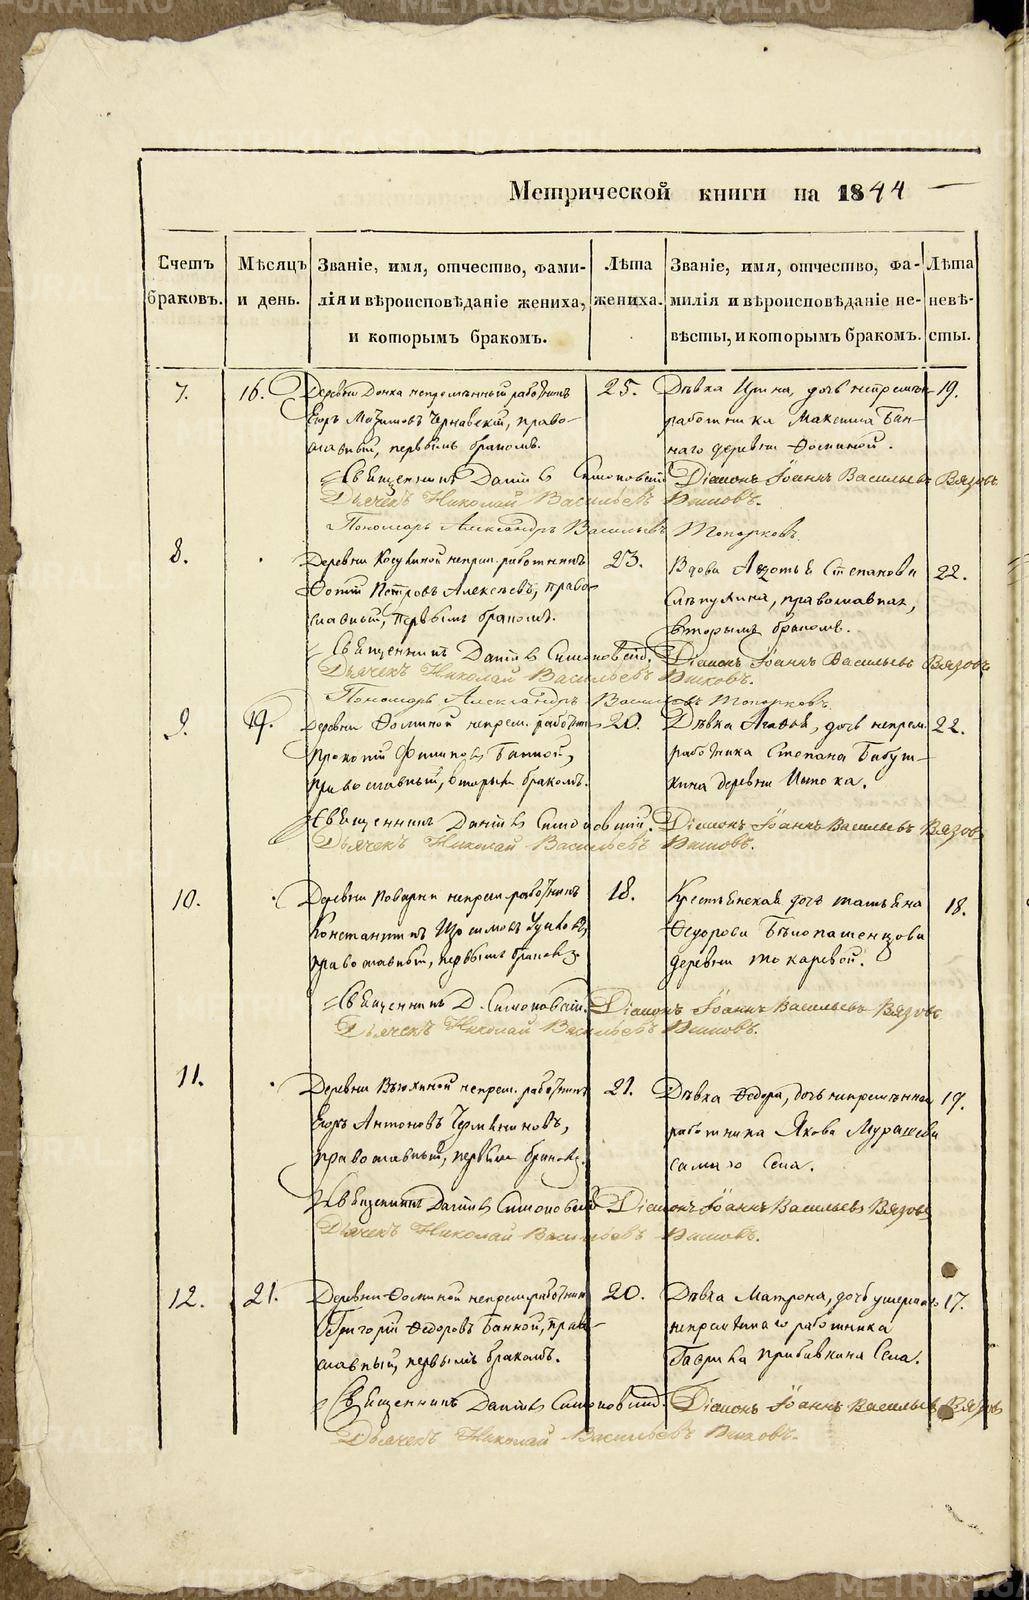 METRIKI.GASO-URAL.RU
Метрической книги на 1844
Счетъ браковъ.
Мѣсяцъ и день.
Званіе, имя, отчество, фами-
лія и вѣроисповѣданіе жениха,
и которымъ бракомъ.
Лѣта жениха.
Званіе, имя, отчество, фа-
милія и вѣроисповѣданіе не-
вѣсты, и которымъ бракомъ.
Лѣта невѣ-
сты.
7. 16.
Деревни непремѣнный работникъ
Егоръ Чернавскій, право-
славный, первымъ бракомъ.
25.
Дѣвка Ирина, дочь непремѣн
работника Максима Бан-
наго деревни Ѳоминой.
19.
Священникъ Даніилъ Симоновскій Діаконъ Іоаннъ Васильевъ Вязовъ
Дьячекъ Николай Васильевъ
Пономарь Александръ Васильевъ Топорковъ.
8.
Деревни непрем. работникъ
Фотій Петровъ Алексѣевъ, право
славный, первымъ бракомъ.
23.
Вдова Авдотья Степанова
православная,
вторымъ бракомъ.
22.
Священникъ Даніилъ Симоновскій. Діаконъ Іоаннъ Васильевъ Вязовъ
Дьячекъ Николай Васильевъ
Пономарь Александръ Васильевъ Топорковъ.
9. 19.
Деревни Ѳоминой непрем. работн
Прокопій Филиповъ Банной,
православный, вторымъ бракомъ.
20.
Дѣвка Агафья, дочь непрем
работника Степана Бабуш-
кина деревни
22.
Священникъ Даніилъ Симоновскій. Діаконъ Іоаннъ Васильевъ Вязовъ
Дьячекъ Николай Васильевъ
10.
Деревни Поварни непрем. работникъ
Константинъ
православный, первымъ бракомъ.
18.
Крестьянская дочь Татьяна
Ѳедорова Бѣлопашенцова
деревни Токаревой.
18.
Священникъ Д. Симоновскій. Діаконъ Іоаннъ Васильевъ Вязовъ
Дьячекъ Николай Васильевъ
11.
Деревни непрем. работникъ
Егоръ Антоновъ
православный, первымъ бракомъ.
21.
Дѣвка Ѳедора, дочь непремѣннаго
работника Якова Мурашева
самаго Села.
19.
Священникъ Даніилъ Симоновскій Діаконъ Іоаннъ Васильевъ Вязовъ
Дьячекъ Николай Васильевъ
12. 21.
Деревни Ѳоминой непрем. работник
Григорій Ѳедоровъ Банной, право-
славный, первымъ бракомъ.
20.
Дѣвка Матрона, дочь умершаго
непремѣннаго работника
Гаврила Прибавкина Села.
17.
Священникъ Даніилъ Симоновскій. Діаконъ Іоаннъ Васильевъ Вязовъ
Дьячекъ Николай Васильевъ
METRIKI.GASO-URAL.RU